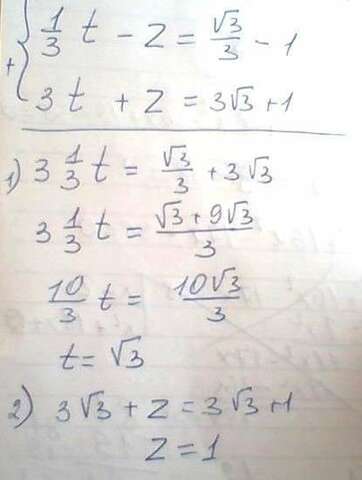 + { 1/3 t - z = √3/3 - 1
3t + z = 3√3 + 1
1) 3 1/3 t = √3/3 + 3√3
3 1/3 t = (√3 + 9√3)/3
10/3 t = 10√3/3
t = √3
2) 3√3 + z = 3√3 + 1
z = 1